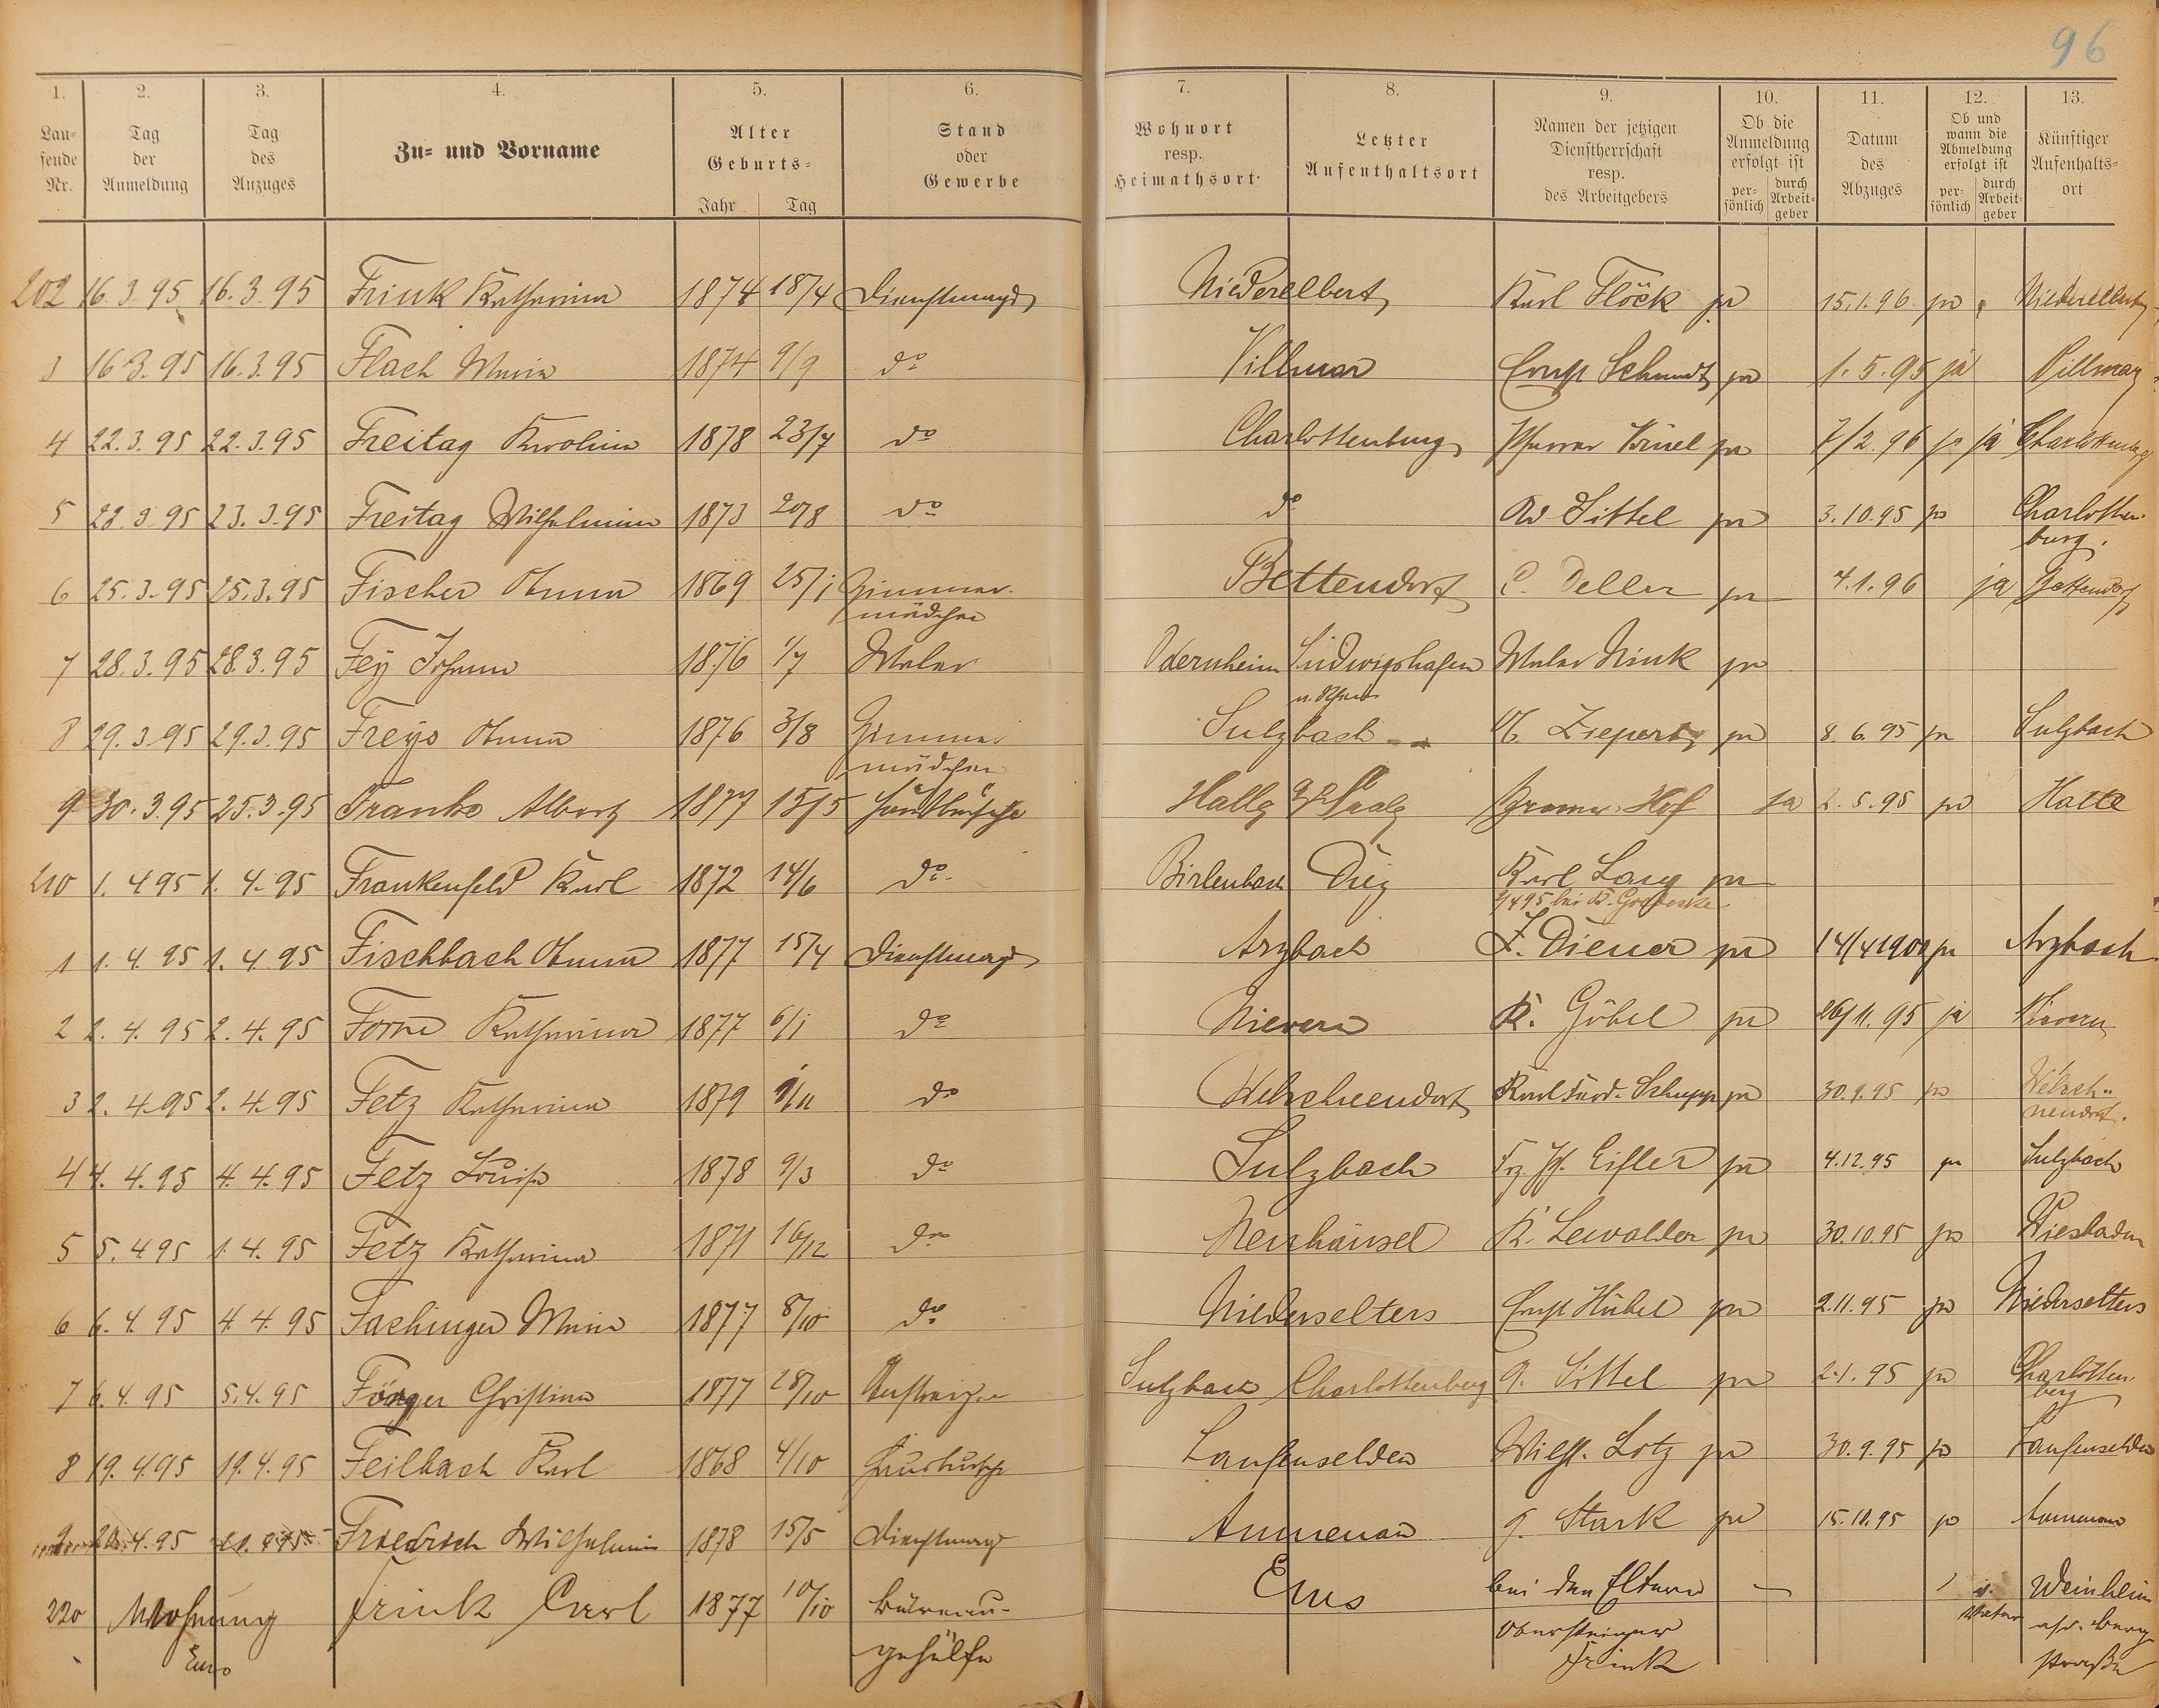 96
1. 2. 3. 4. 5. 6. 7. 8. 9. 10. 11. 12. 13.
Lau-
fende
Nr.
Tag
der
Anmeldung
Tag
des
Anzuges
Zu- und Vorname
Alter
Geburts-
Jahr Tag
Stand
oder
Gewerbe
Wohnort
resp.
Heimathsort.
Letzter
Aufenthaltsort
Namen der jetzigen
Dienstherrschaft
resp.
des Arbeitgebers
Ob die
Anmeldung
erfolgt ist
per-
sönlich
durch
Arbeit-
geber
Datum
des
Abzuges
Ob und
wann die
Abmeldung
erfolgt ist
per-
sönlich
durch
Arbeit-
geber
Künftiger
Aufenthalts-
ort
202 16.3.95 16.3.95 Frink Katharina 1874 18/4 Dienstmagd Niederelbert Karl Flöck ja 15.1.96 ja Niederelbert
3 16.3.95 16.3.95 Flach Maria 1874 9/9 do Villmar Ernst Schmidt ja 1.5.95 ja Villmar
4 22.3.95 22.3.95 Freitag Karolina 1878 23/7 do Charlottenburg Pfarrer ja 7/2.96 ja ja Charlottenberg
5 23.3.95 23.3.95 Freitag Wilhelmine 1873 20/8 do do Sittel ja 3.10.95 ja Charlotten-
burg.
6 25.3.95 25.3.95 Fischer Anna 1869 25/1 Zimmer- Bettendorf C. Deller ja 4.1.96 ja Bettendorf
mädchen
7 28.3.95 28.3.95 Fey Johann 1876 1/7 Maler Odernheim Ludwigshafen Maler Nink ja
a. Rhein
8 29.3.95 29.3.95 Freys Anna 1876 3/8 Zimmer Sulzbach Ziepert ja 8.6.95 ja Sulzbach
mädchen
9 30.3.95 25.3.95 Franke Albert 1877 15/5 Hausbursche Halle a/Saale Hof ja 2.5.95 ja Halle
210 1.4.95 1.4.95 Frankenfeld Karl 1872 14/6 do Birlenbach Diez Karl Lang ja
1 1.4.95 1.4.95 Fischbach Anna 1877 15/4 Dienstmagd Arzbach F. Diener ja 14/4 1900 ja Arzbach
2 2.4.95 2.4.95 Forne Katharina 1877 6/1 do Nievern K. Göbel ja 26/11.95 ja Nievern
3 2.4.95 2.4.95 Fetz Katharina 1879 /11 do Welschneudorf Karl Ferd. Schupp ja 30.9.95 ja Welsch-
neudorf.
4 4.4.95 4.4.95 Fetz Louise 1878 9/3 do Sulzbach Eifler ja 4.12.95 ja Sulzbach
5 5.4.95 1.4.95 Fetz Katharina 1871 16/12 do Neuhäusel K. Lewalder ja 30.10.95 ja Wiesbaden
6 6.4.95 4.4.95 Fachinger Maria 1877 8/10 do Niederselters Ernst Hübel ja 2.11.95 ja Niederselters
7 6.4.95 5.4.95 Christine 1877 28/10 Sulzbach Charlottenberg Sittel ja 2.1.95 ja Charlotten-
berg
8 19.4.95 19.4.95 Feilbach Karl 1868 4/10 Hausbursche Laufenselden Wilh. Lotz ja 30.9.95 ja Laufenselden
9 20.4.95 21.4.95 Friedrich Wilhelmine 1878 15/5 Dienstmagd Aumenau G. Stark ja 15.11.95 ja Aumenau
220 Wohnung Frink Carl 1877 10/10 Büreau- Ems bei den Eltern — v. Weinheim
Ems gehülfe Obersteiger Vater a/d. Berg
Frink straße